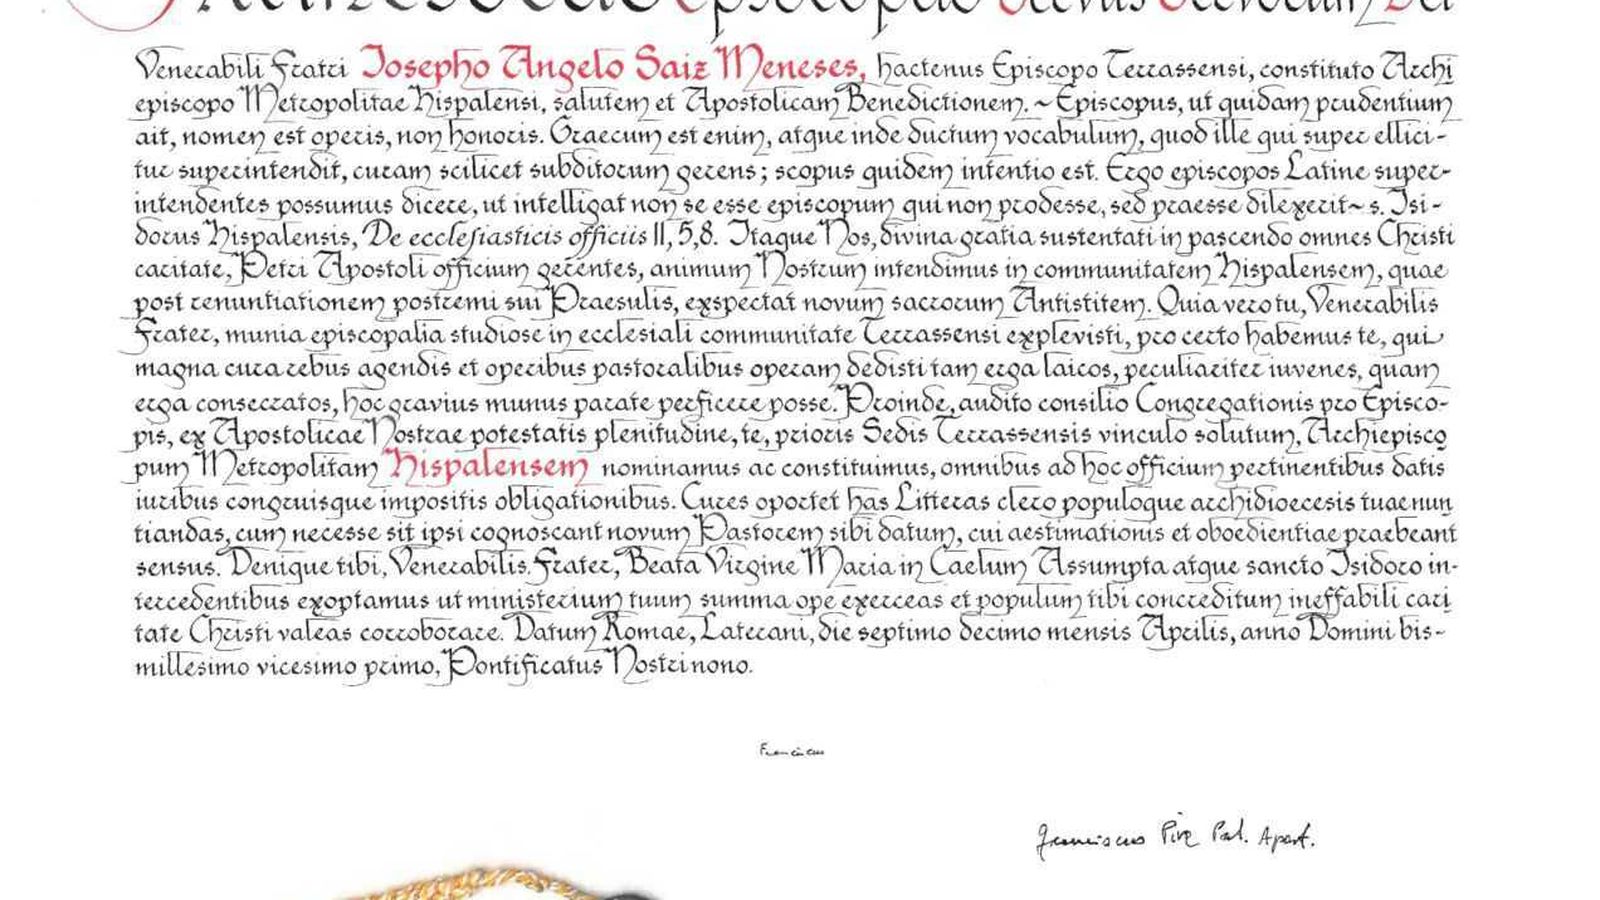 Franciscus Episcopus Servus Servorum Dei
Venerabili Fratri Josepho Angelo Saiz Meneses, hactenus Episcopo Terrassensi, constituto Archi
episcopo Metropolitae Hispalensi, salutem et Apostolicam Benedictionem. ~ Episcopus, ut quidam prudentium
ait, nomen est operis, non honoris. Graecum est enim, atque inde ductum vocabulum, quod ille qui super effici-
tur superintendit, curam scilicet subditorum gerens; scopus quidem intentio est. Ergo episcopos Latine super-
intendentes possumus dicere, ut intelligat non se esse episcopum qui non prodesse, sed praeesse dilexerit ~ s. Isi-
dorus Hispalensis, De ecclesiasticis officiis II, 5,8. Itaque Nos, divina gratia sustentati in pascendo omnes Christi
caritate, Petri Apostoli officium gerentes, animum Nostrum intendimus in communitatem Hispalensem, quae
post renuntiationem postremi sui Praesulis, exspectat novum sacrorum Antistitem. Quia vero tu, Venerabilis
Frater, munia episcopalia studiose in ecclesiali communitate Terrassensi explevisti, pro certo habemus te, qui
magna cura rebus agendis et operibus pastoralibus operam dedisti tam erga laicos, peculiariter iuvenes, quam
erga consecratos, hoc gravius munus parate perficere posse. Proinde, audito consilio Congregationis pro Episco-
pis, ex Apostolicae Nostrae potestatis plenitudine, te, prioris Sedis Terrassensis vinculo solutum, Archiepisco
pum Metropolitam Hispalensem nominamus ac constituimus, omnibus ad hoc officium pertinentibus datis
iuribus congruisque impositis obligationibus. Cures oportet has Litteras clero populoque archidioecesis tuae nun
tiandas, cum necesse sit ipsi cognoscant novum Pastorem sibi datum, cui aestimationis et oboedientiae praebeant
sensus. Denique tibi, Venerabilis Frater, Beata Virgine Maria in Caelum Assumpta atque sancto Isidoro in-
tercedentibus exoptamus ut ministerium tuum summa ope exerceas et populum tibi concreditum ineffabili cari
tate Christi valeas corroborare. Datum Romae, Laterani, die septimo decimo mensis Aprilis, anno Domini bis-
millesimo vicesimo primo, Pontificatus Nostri nono.
Franciscus
Franciscus Piva Prot. Apost.